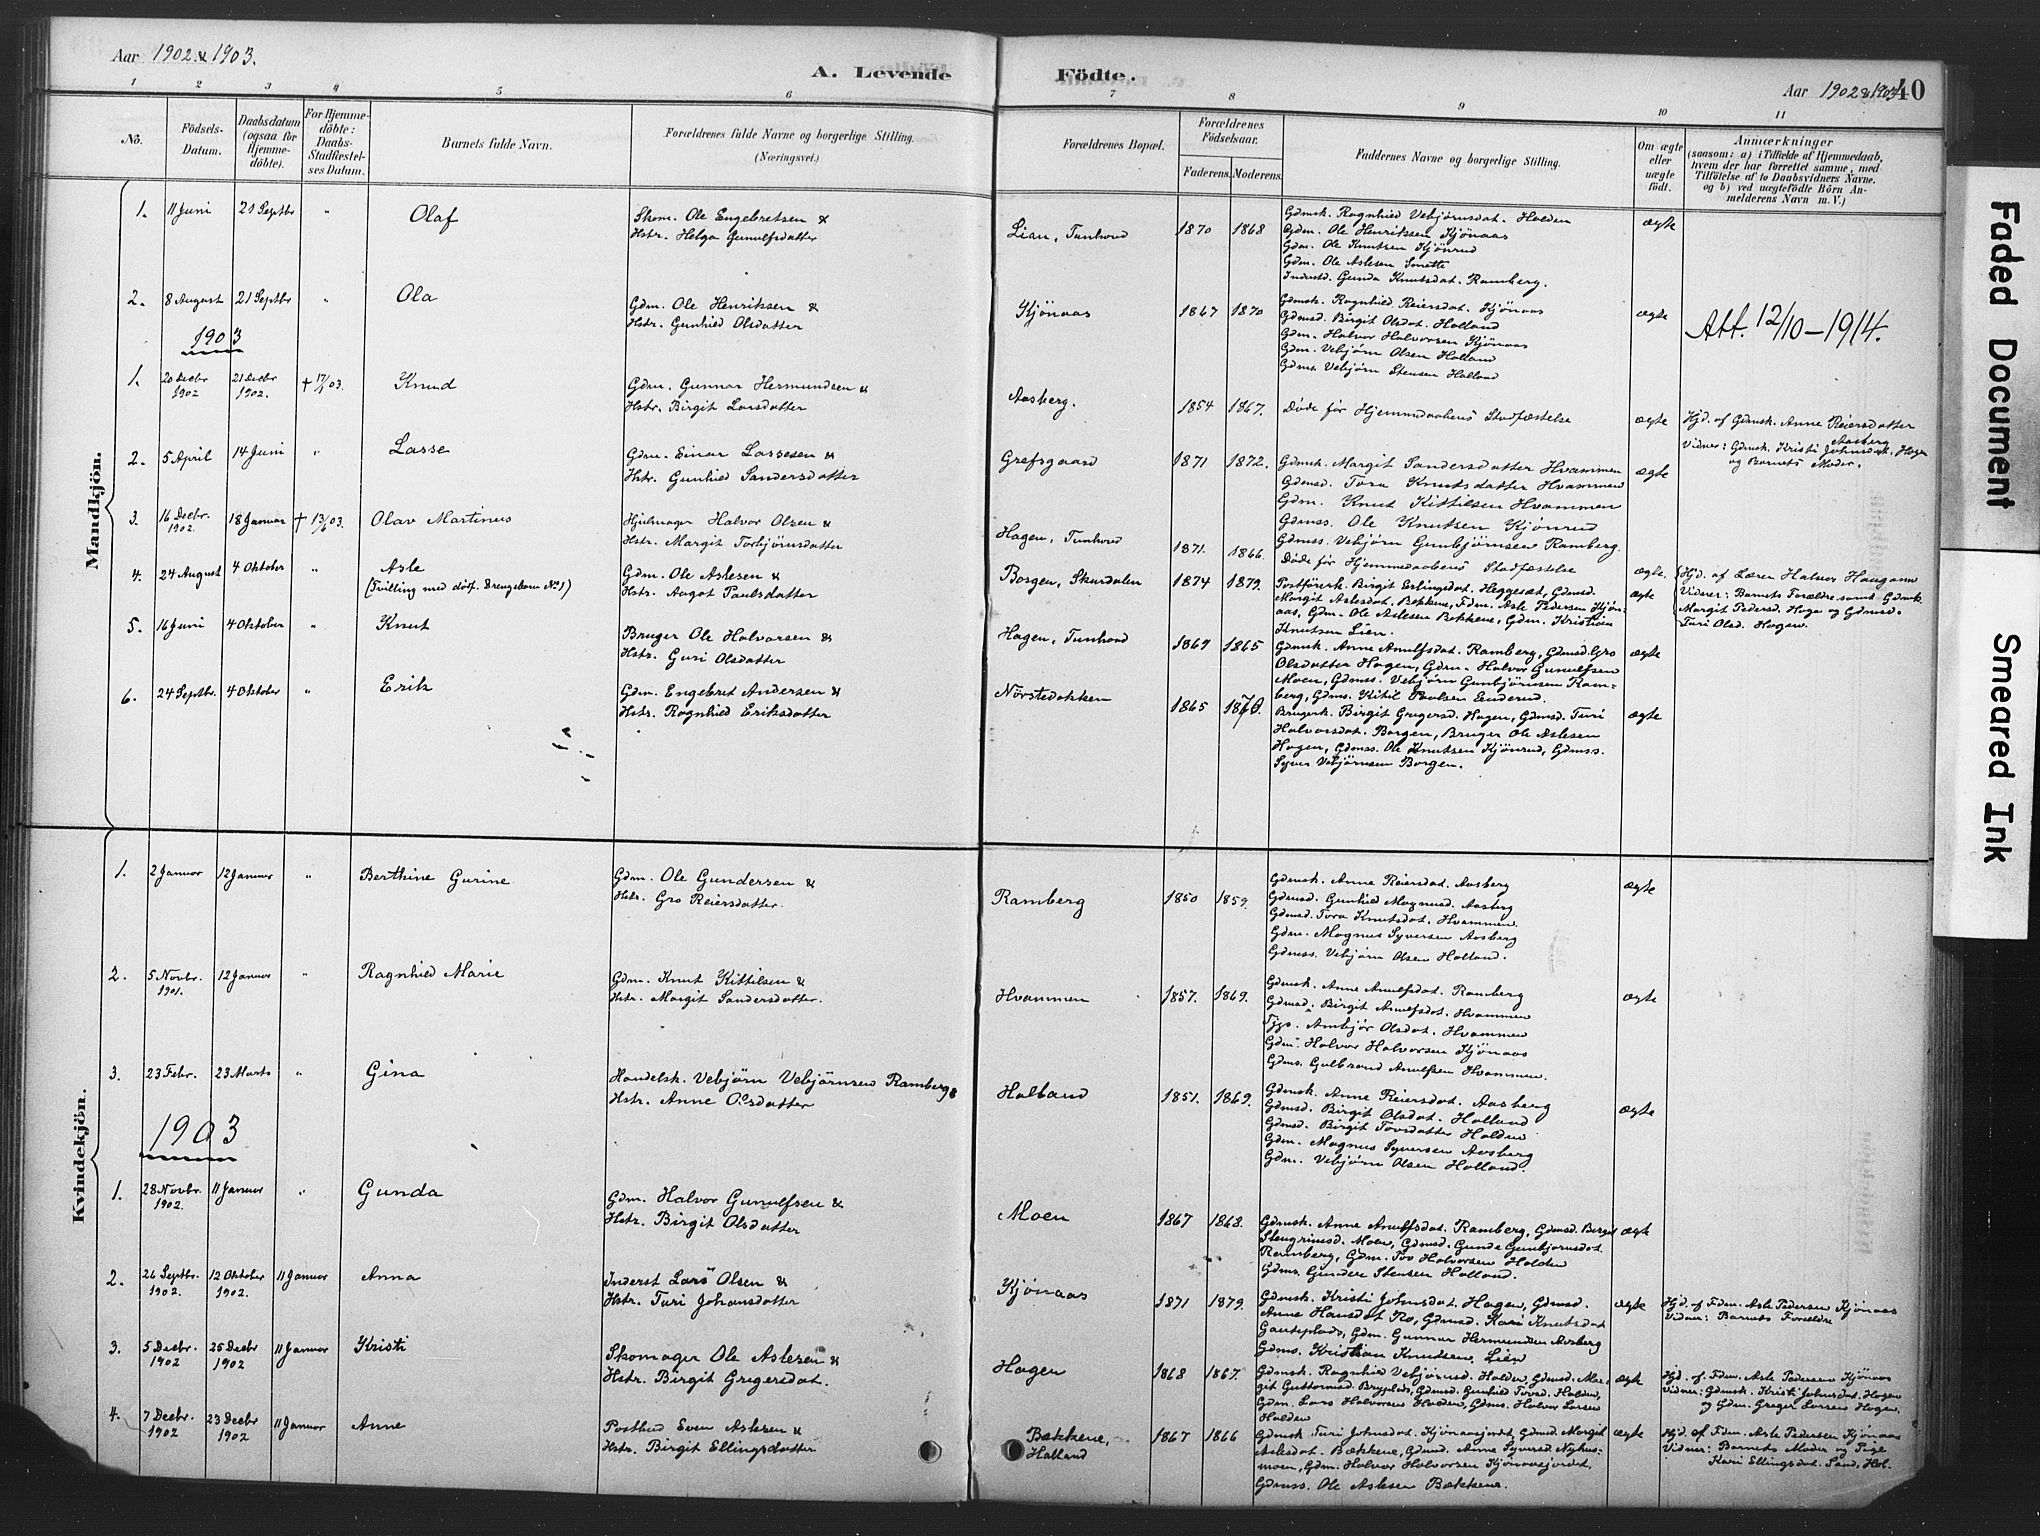 Aar 1902 & 1903.
A. Levende Födte.
Aar 1902 & 1903. 40
1 2 3 4 5 6 7 8 9 10 11
No.
Födsels-Datum.
Daabsdatum (ogsaa for Hjemmedöbte).
For Hjemmedöbte: Daabs-Stadfæstelses Datum.
Barnets fulde Navn.
Forældrenes fulde Navne og borgerlige Stilling. (Næringsvei.)
Forældrenes Bopæl.
Forældrenes Födselsaar.
Faderens. Moderens.
Faddernes Navne og borgerlige Stilling.
Om ægte eller uægte födt.
Anmærkninger
(saasom: a) i Tilfælde af Hjemmedaab,
hvem der har forrettet samme, med
Tilföielse af to Daabsvidners Navne.
og b) ved uægtefödte Börn An-
melderens Navn m. V.)
Mandkjön.
1. 11 Juni 21 Septbr " Olaf
Skom. Ole Engebretsen &
Hstr. Helga Gunulfsdatter
Lian, Tunhovd 1870 1868
Gdmsk. Ragnhild Vebjørnsdat. Holden
Gdm. Ole Henriksen Kjønaas
Gdm. Ole Knutsen Kjønrud
Gdm. Ole Aslesen Smette
Inderstd. Gunda Knutsdat. Ramberg.
ægte
2. 8 August 21 Septbr " Ola
Gdm. Ole Henriksen &
Hstr. Gunhild Olsdatter
Kjønaas 1867 1870
Gdmsk. Ragnhild Reiersdat. Kjønaas
Gdmsd. Birgit Olsdat. Holland
Gdm. Halvor Halvorsen Kjønaas
Gdm. Vebjørn Olsen Holland
Gdms. Vebjørn Stensen Holland
ægte
Att. 12/10-1914.
1903
1. 20 Decbr 1902 21 Decbr 1902. † 17/1 03. Knud
Gdm. Gunnar Hermundsen &
Hstr. Birgit Larsdatter
Aasberg. 1854 1867.
Døde før Hjemmedaabens Stadfæstelse
ægte
Hjd. af Gdmsk. Anne Reiersdatter Aasberg
Vidner: Gdmsk. Kristi Johnsdat. Hagen
og Barnets Moder.
2. 5 April 14 Juni " Lasse
Gdm. Einar Lassesen &
Hstr. Gunhild Sandersdatter
Grefsgaard 1871 1872.
Gdmsk. Margit Sandersdatter Hvammen
Gdmsd. Tora Knutsdatter Hvammen
Gdm. Knut Kittilsen Hvammen
Gdmss. Ole Knutsen Kjønrud
Gdmss. Vebjørn Gunbjørnsen Ramberg.
ægte
3. 16 Decbr. 1902. 18 Januar † 13/6 03. Olav Martinus
Hjulmager Halvor Olsen &
Hstr. Margit Torbjørnsdatter
Hagen, Tunhovd 1871. 1866.
Døde før Hjemmedaabens Stadfæstelse
ægte.
Hjd. af Lærer Halvor Haugann
Vidner: Barnets Forældre samt Gdmsk.
Margit Pedersd. Haga og Gdmsd.
Turi Olsd. Hagen.
4. 24 August 4 Oktober " Asle
(Tvilling med døf. Drengebarn No 1)
Gdm. Ole Aslesen &
Hstr. Aagot Paulsdatter
Borgen, Skurdalen 1874 1879.
Postførerk. Birgit Erlingsdat. Heggesæt, Gdmsd.
Margit Aslesdat. Bekkene, Fdm. Asle Pedersen Kjøn-
aas, Gdm. Ole Aslesen Bekkene, Gdm. Kristian
Knutsen Lien.
ægte
5. 16 Juni 4 Oktober " Knut
Bruger Ole Halvorsen &
Hstr. Guri Olsdatter
Hagen, Tunhovd 1869 1865
Gdmsk. Anne Arnulfsdat. Ramberg, Gdmsd. Gro
Olsdatter Hagen, Gdm. Halvor Gunulfsen
Moen, Gdmss. Vebjørn Gunbjørnsen Ram-
berg, Gdms. Kitil Paulsen Enderud.
ægte
6. 24 Septbr. 4 Oktober " Erik
Gdm. Engebret Andersen &
Hstr. Ragnhild Eriksdatter
Nørstedokken 1865 1870.
Brugerk. Birgit Gregersd. Hagen, Gdmsd. Turi
Halvorsdat. Borgen, Bruger Ole Aslesen
Hagen, Gdmss. Ole Knutsen Kjønrud, Gdmss.
Syver Vebjørnsen Borgen.
ægte
Kvindekjön.
1. 2 Januar 12 Januar " Berthine Gurine
Gdm. Ole Gundersen &
Hstr. Gro Reiersdatter.
Ramberg 1850 1859.
Gdmsk. Anne Reiersdat. Aasberg
Gdmsd. Gunhild Magnusd. Aasberg
Gdmsd. Tora Knutsdat. Hvammen.
Gdm. Magnus Syversen Aasberg
Gdmss. Vebjørn Olsen Holland.
ægte
2. 5 Novbr. 1901. 12 Januar " Ragnhild Marie
Gdm. Knut Kittilsen &
Hstr. Margit Sandersdatter.
Hvammen 1857. 1869.
Gdmsk. Anne Arnulfsdat. Ramberg
Gdmsd. Birgit Arnulfsdat. Hvammen
Tjgp. Ambjør Olsdat. Hvammen
Gdm. Halvor Halvorsen Kjønaas
Gdms. Gulbrand Arnulfsen Hvammen.
ægte
3. 23 Febr. 23 Marts " Gina
Handelsk. Vebjørn Vebjørnsen Ramberg &
Hstr. Anne Olsdatter
Holland 1851. 1869.
Gdmsk. Anne Reiersdat. Aasberg
Gdmsd. Birgit Olsdat. Holland
Gdmsd. Birgit Torsdatter Holden
Gdm. Magnus Syversen Aasberg
Gdm. Vebjørn Olsen Holland.
ægte
1903
1. 28 Novbr. 1902. 11 Januar " Gunda
Gdm. Halvor Gunulfsen &
Hstr. Birgit Olsdatter
Moen 1867 1868.
Gdmsk. Anne Arnulfsdat. Ramberg, Gdmsd. Birgit
Stengrimsd. Moen, Gdmsd. Gunda Gunbjørnsdat.
Ramberg, Gdm. Tov Halvorsen Holden
Gdms. Gunder Stensen Holland.
ægte
2. 26 Septbr. 1902. 12 Oktober 1902. 11 Januar Anna
Inderst Lars Olsen &
Hstr. Turi Johansdatter
Kjønaas 1871 1879.
Gdmsk. Kristi Johnsdat. Hagen, Gdmsd.
Anne Hansdat Ro, Gdmsd. Kari Knutsdat
Gauteplads, Gdm. Gunnar Hermundsen Aasberg
Gdms. Kristian Knudsen Lien
ægte
Hjd. af Fdm. Asle Pedersen Kjønaas
Vidner: Barnets Forældre
3. 5 Decbr. 1902 25 Decbr 1902 11 Januar Kristi
Skomager Ole Aslesen &
Hstr. Birgit Gregersdat.
Hagen 1868 1867.
Gdmsk. Ragnhild Vebjørnsd. Holden, Gdmsd. Mar-
git Guttormsd. Brypladsd., Gdmsd. Gunhild Tovsd. Holden,
Gdm. Lars Halvorsen Holden, Gdms. Halvor Larsen
Holden
ægte
Hjd. af Fdm. Asle Pedersen Kjønaas
Vidner: Gdmsk. Kristi Johnsdat. Hagen
og Gdm. Greger Larsen Hagen.
4. 7 Decbr. 1902 23 Decbr 1902 11 Januar Anne
Postbud Even Aslesen &
Hstr. Birgit Ellingsdatter
Bækkene, Holland 1867 1866
Gdmsk Turi Johnsdat. Kjønaasjordet, Gdmsd. Margit
Aslesdat. Bækkene, Gdmsd. Anne Syversd. Nyhus-
moen, Gdm. Halvor Halvorsen Kjønaasjordet,
Gdmss. Ole Aslesen Bækkene.
ægte
Hjd. af Fdm. Asle Pedersen Kjønaas
Vidner: Barnets Moder og Pige
Kari Ellingsdat. Sand, Hol.
Faded Document
Smeared Ink